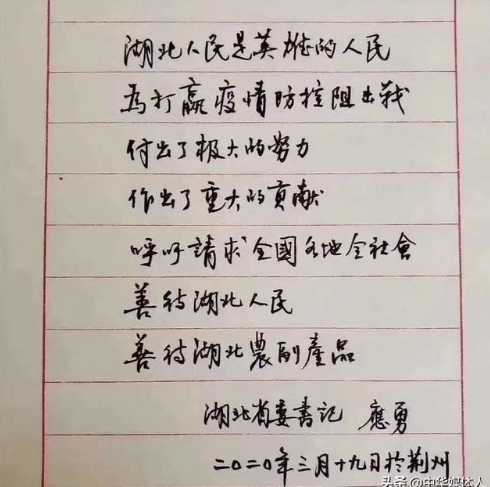 湖北人民是英雄的人民
為打贏疫情防控阻击战
付出了极大的努力
作出了重大的貢献
呼吁請求全國各地全社會
善待湖北人民
善待湖北農副產品
湖北省委書记 應勇
二〇二〇年三月十九日於荆州
头条@中华媒体人